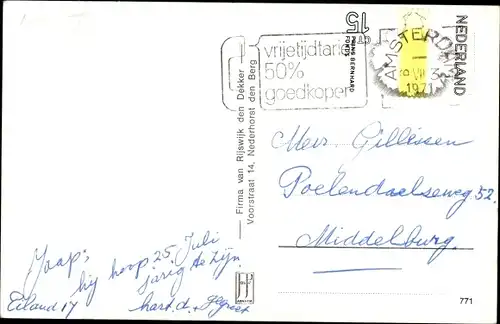 NEDERLAND
15 CT
PRINS BERNHARD
FONDS
AMSTERDAM
VII
1971
vrijetijdtarief
50%
goedkoper
Firma van Rijswijk den Dekker
Voorstraat 14, Nederhorst den Berg
Mevr Gillissen
Poelendaelseweg 52.
Middelburg.
Jaap;
hij hoop 25 Juli
jarig te zijn
Eiland 17
hart. d.
771